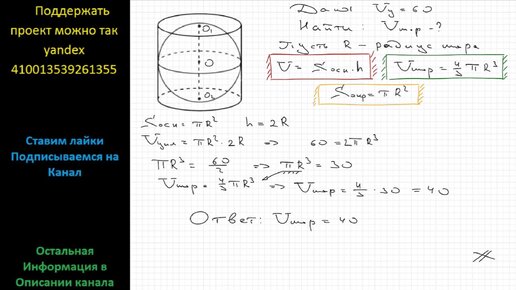 Поддержать
проект можно так
yandex
410013539261355
Ставим лайки
Подписываемся на
Канал
Остальная
Информация в
Описании канала
O₁
O
O₂
Дано: Vц = 60
Найти: Vшар - ?
Пусть R - радиус шара
V = Sосн · h
Vшар = 4/3 πR³
Sокр = πR²
Sосн = πR² h = 2R
Vцил = πR² · 2R ⇒ 60 = 2πR³
πR³ = 60/2 ⇒ πR³ = 30
Vшар = 4/3 πR³ ⇒ Vшар = 4/3 · 30 = 40
Ответ: Vшар = 40